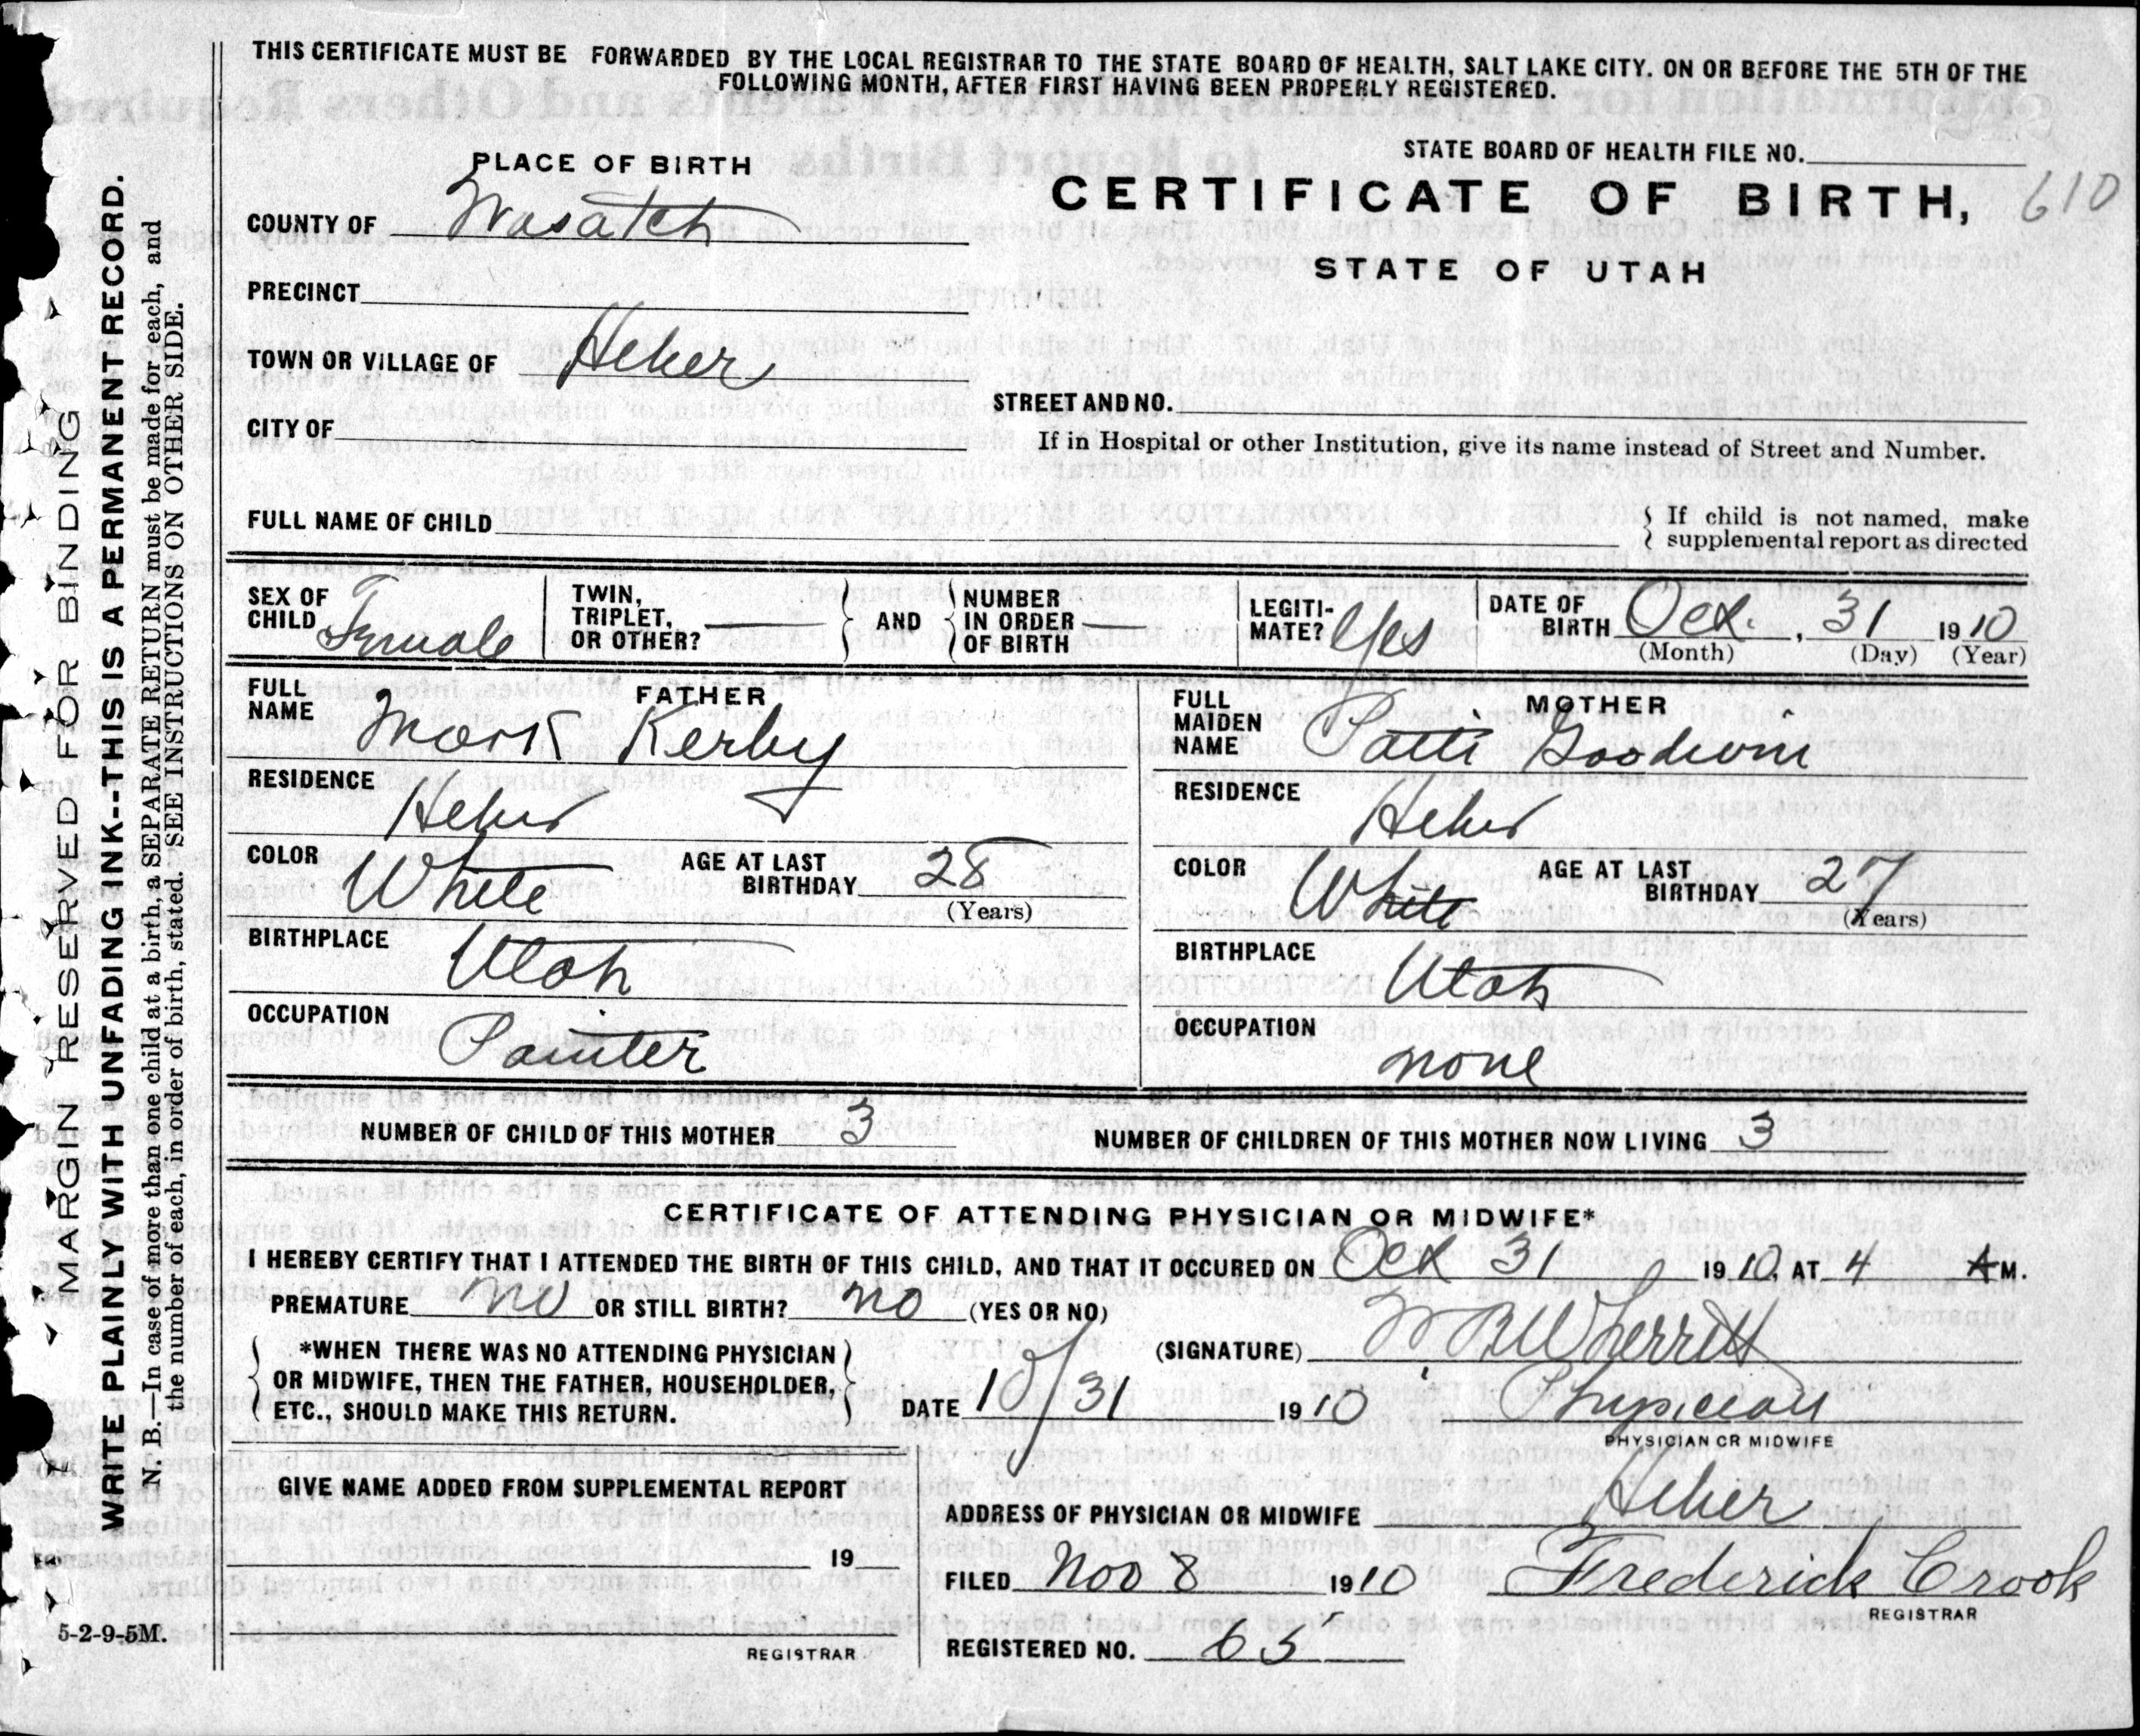 THIS CERTIFICATE MUST BE FORWARDED BY THE LOCAL REGISTRAR TO THE STATE BOARD OF HEALTH, SALT LAKE CITY. ON OR BEFORE THE 5TH OF THE
FOLLOWING MONTH, AFTER FIRST HAVING BEEN PROPERLY REGISTERED.
MARGIN RESERVED FOR BINDING
WRITE PLAINLY WITH UNFADING INK--THIS IS A PERMANENT RECORD.
N. B.—In case of more than one child at a birth, a SEPARATE RETURN must be made for each, and
the number of each, in order of birth, stated. SEE INSTRUCTIONS ON OTHER SIDE.
5-2-9-5M.
PLACE OF BIRTH
COUNTY OF Wasatch
PRECINCT
TOWN OR VILLAGE OF Heber
CITY OF
STATE BOARD OF HEALTH FILE NO.
CERTIFICATE OF BIRTH, 610
STATE OF UTAH
STREET AND NO.
If in Hospital or other Institution, give its name instead of Street and Number.
FULL NAME OF CHILD
If child is not named, make
supplemental report as directed
SEX OF CHILD Female
TWIN, TRIPLET, OR OTHER?
AND
NUMBER IN ORDER OF BIRTH
LEGITI-MATE? Yes
DATE OF BIRTH Oct. , 31 1910
(Month) (Day) (Year)
FATHER
FULL NAME Mark Kerby
RESIDENCE Heber
COLOR White AGE AT LAST BIRTHDAY 28
(Years)
BIRTHPLACE Utah
OCCUPATION Painter
MOTHER
FULL MAIDEN NAME Patti Goodwin
RESIDENCE Heber
COLOR White AGE AT LAST BIRTHDAY 27
(Years)
BIRTHPLACE Utah
OCCUPATION none
NUMBER OF CHILD OF THIS MOTHER 3 NUMBER OF CHILDREN OF THIS MOTHER NOW LIVING 3
CERTIFICATE OF ATTENDING PHYSICIAN OR MIDWIFE*
I HEREBY CERTIFY THAT I ATTENDED THE BIRTH OF THIS CHILD, AND THAT IT OCCURED ON Oct 31 1910, AT 4 A M.
PREMATURE no OR STILL BIRTH? no (YES OR NO)
*WHEN THERE WAS NO ATTENDING PHYSICIAN
OR MIDWIFE, THEN THE FATHER, HOUSEHOLDER,
ETC., SHOULD MAKE THIS RETURN.
(SIGNATURE) W R Wherritt
DATE 10/31 1910 Physician
PHYSICIAN OR MIDWIFE
GIVE NAME ADDED FROM SUPPLEMENTAL REPORT
19
REGISTRAR
ADDRESS OF PHYSICIAN OR MIDWIFE Heber
FILED Nov 8 1910 Frederick Crook
REGISTRAR
REGISTERED NO. 65